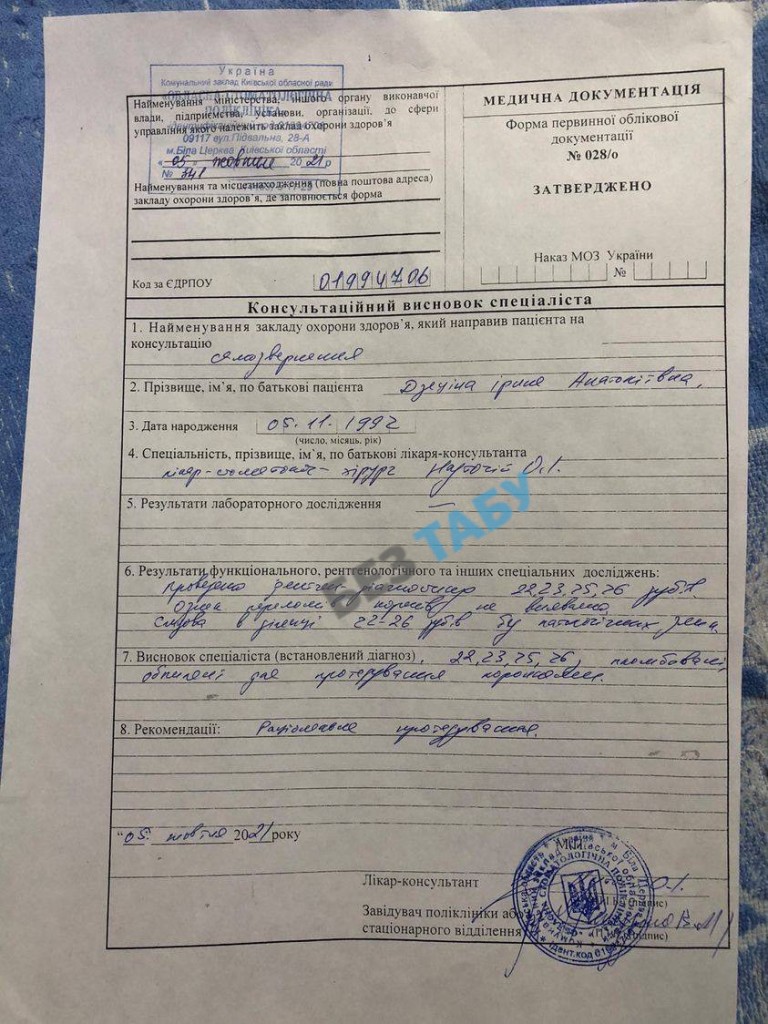 Україна
Комунальний заклад Київської обласної ради
«ОБЛАСНА СТОМАТОЛОГІЧНА
ПОЛІКЛІНІКА»
09117 вул.Підвальна, 28-А
м.Біла Церква Київської області
«05» жовтня 2021 р
№ 341
Найменування міністерства, іншого органу виконавчої
влади, підприємства, установи, організації, до сфери
управління якого належить заклад охорони здоров'я
Найменування та місцезнаходження (повна поштова адреса)
закладу охорони здоров'я, де заповнюється форма
Код за ЄДРПОУ 01994706
МЕДИЧНА ДОКУМЕНТАЦІЯ
Форма первинної облікової
документації
№ 028/о
ЗАТВЕРДЖЕНО
Наказ МОЗ України
№
Консультаційний висновок спеціаліста
1. Найменування закладу охорони здоров'я, який направив пацієнта на
консультацію
самозвернення
2. Прізвище, ім'я, по батькові пацієнта Ірина Анатоліївна
3. Дата народження 05.11.1992
(число, місяць, рік)
4. Спеціальність, прізвище, ім'я, по батькові лікаря-консультанта
лікар-стоматолог-хірург О.І.
5. Результати лабораторного дослідження —
БЕЗ ТАБУ
6. Результати функціонального, рентгенологічного та інших спеціальних досліджень:
Проведено 22,23,25,26 зубів.
Ознак перелому коренів не виявлено.
в ділянці 22-26 зубів без патологічних змін
7. Висновок спеціаліста (встановлений діагноз) 22,23,25,26, пломбовані,
обпиляні для протезування коронками.
8. Рекомендації: Раціональне протезування.
"05" жовтня 2021 року
М.П.
Лікар-консультант О.І.
(підпис)
Завідувач поліклініки або
стаціонарного відділення
(підпис)